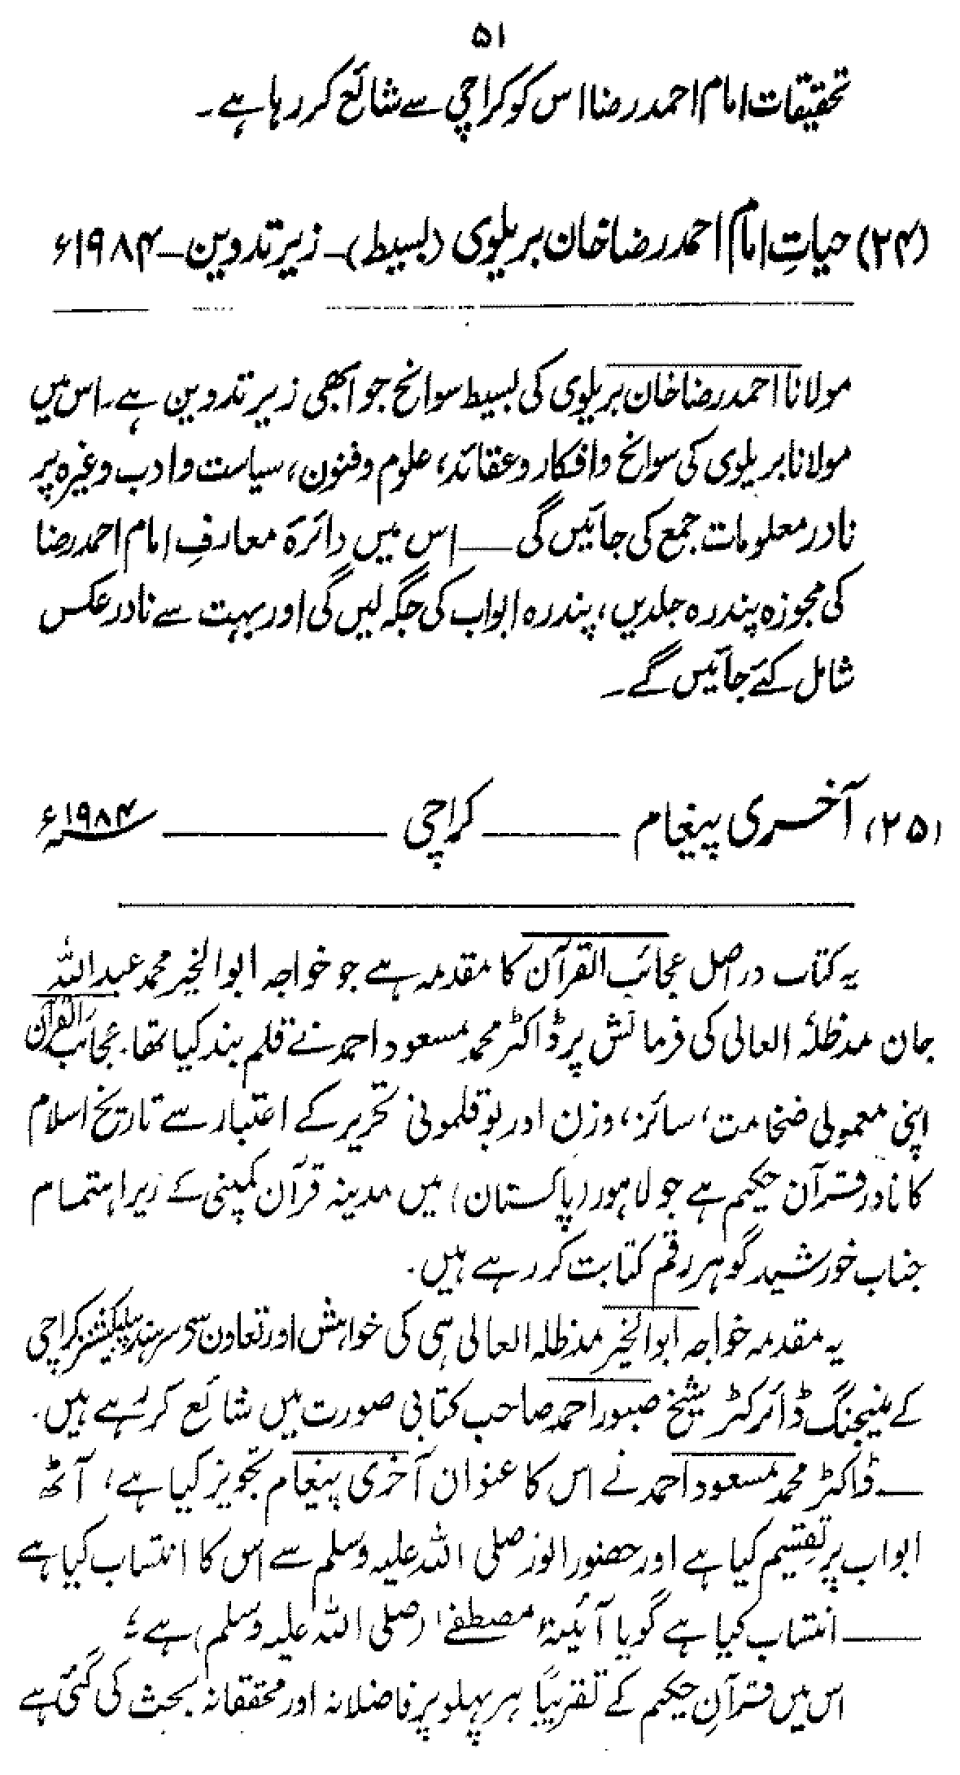 ۵۱
تحقیقات امام احمد رضا اس کو کراچی سے شائع کر رہا ہے۔
(۲۴) حیاتِ امام احمد رضا خان بریلوی (بسیط)۔ زیر تدوین۔ ۱۹۸۴ء
مولانا احمد رضا خان بریلوی کی بسیط سوانح جو ابھی زیر تدوین ہے۔ اس میں
مولانا بریلوی کی سوانح و افکار و عقائد، علوم و فنون، سیاست و ادب وغیرہ پر
نادر معلومات جمع کی جائیں گی ــــ اس میں دائرۃ معارفِ امام احمد رضا
کی مجوزہ پندرہ جلدیں، پندرہ ابواب کی جگہ لیں گی اور بہت سے نادر عکس
شامل کئے جائیں گے۔
(۲۵) آخری پیغام ــــــ کراچی ــــــ ۱۹۸۴ء
یہ کتاب دراصل عجائب القرآن کا مقدمہ ہے جو خواجہ ابوالخیر محمد عبداللہ
جان مدظلہٗ العالی کی فرمائش پر ڈاکٹر محمد مسعود احمد نے قلم بند کیا تھا۔ عجائب القرآن
اپنی معمولی ضخامت، سائز، وزن اور بوقلمونی تحریر کے اعتبار سے تاریخ اسلام
کا نادر قرآن حکیم ہے جو لاہور (پاکستان) میں مدینہ قرآن کمپنی کے زیر اہتمام
جناب خورشید گوہر رقم کتابت کر رہے ہیں۔
یہ مقدمہ خواجہ ابوالخیر مدظلہ العالی ہی کی خواہش اور تعاون سے سرہند پبلیکیشنز کراچی
کے منیجنگ ڈائرکٹر شیخ صبور احمد صاحب کتابی صورت میں شائع کر رہے ہیں۔
ــــ ڈاکٹر محمد مسعود احمد نے اس کا عنوان آخری پیغام تجویز کیا ہے، آٹھ
ابواب پر تقسیم کیا ہے اور حضور انور صلی اللہ علیہ وسلم سے اس کا انتساب کیا ہے
ــــ انتساب کیا ہے گویا آئینۂ مصطفےٰ (صلی اللہ علیہ وسلم) ہے؛
اس میں قرآنِ حکیم کے تقریباً ہر پہلو پر فاضلانہ اور محققانہ بحث کی گئی ہے